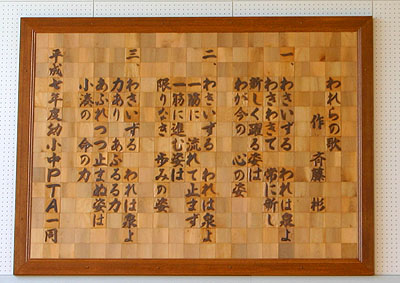 われらの歌
作 斉藤 彬
一、わきいずる われは泉よ
わきわきて 常に新し
新しく躍る姿は
わが今の 心の姿
二、わきいずる われは泉よ
一筋に 流れて止まず
一筋に進む姿は
限りなき 歩みの姿
三、わきいずる われは泉よ
力あり あふるる力
あふれつつ止まぬ姿は
小湊の 命の力
平成七年度幼小中PTA一同